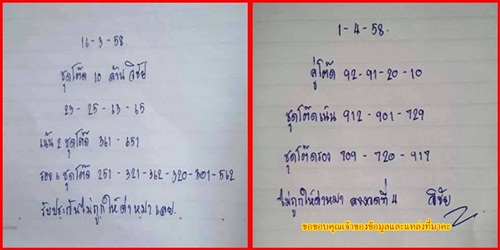 16-3-58.
ชุดโต๊ด 10 ล้าน วิชัย
23 - 25 - 63 - 65
เน้น 2 ชุดโต๊ด 361 - 651
รอง 6 ชุดโต๊ด 251 - 321 - 362 - 320 - 801 - 562
รับประกันไม่ถูกให้ด่าหมาเลย.
1-4-58.
คู่โต๊ด 92-91-20-10
ชุดโต๊ดเน้น 912 - 901 - 729
ชุดโต๊ดรอง 709 - 720 - 917
ไม่ถูกให้ด่าหมา ลองงวดที่ 4 วิชัย
ขอขอบคุณเจ้าของข้อมูลและแหล่งที่มาคะ